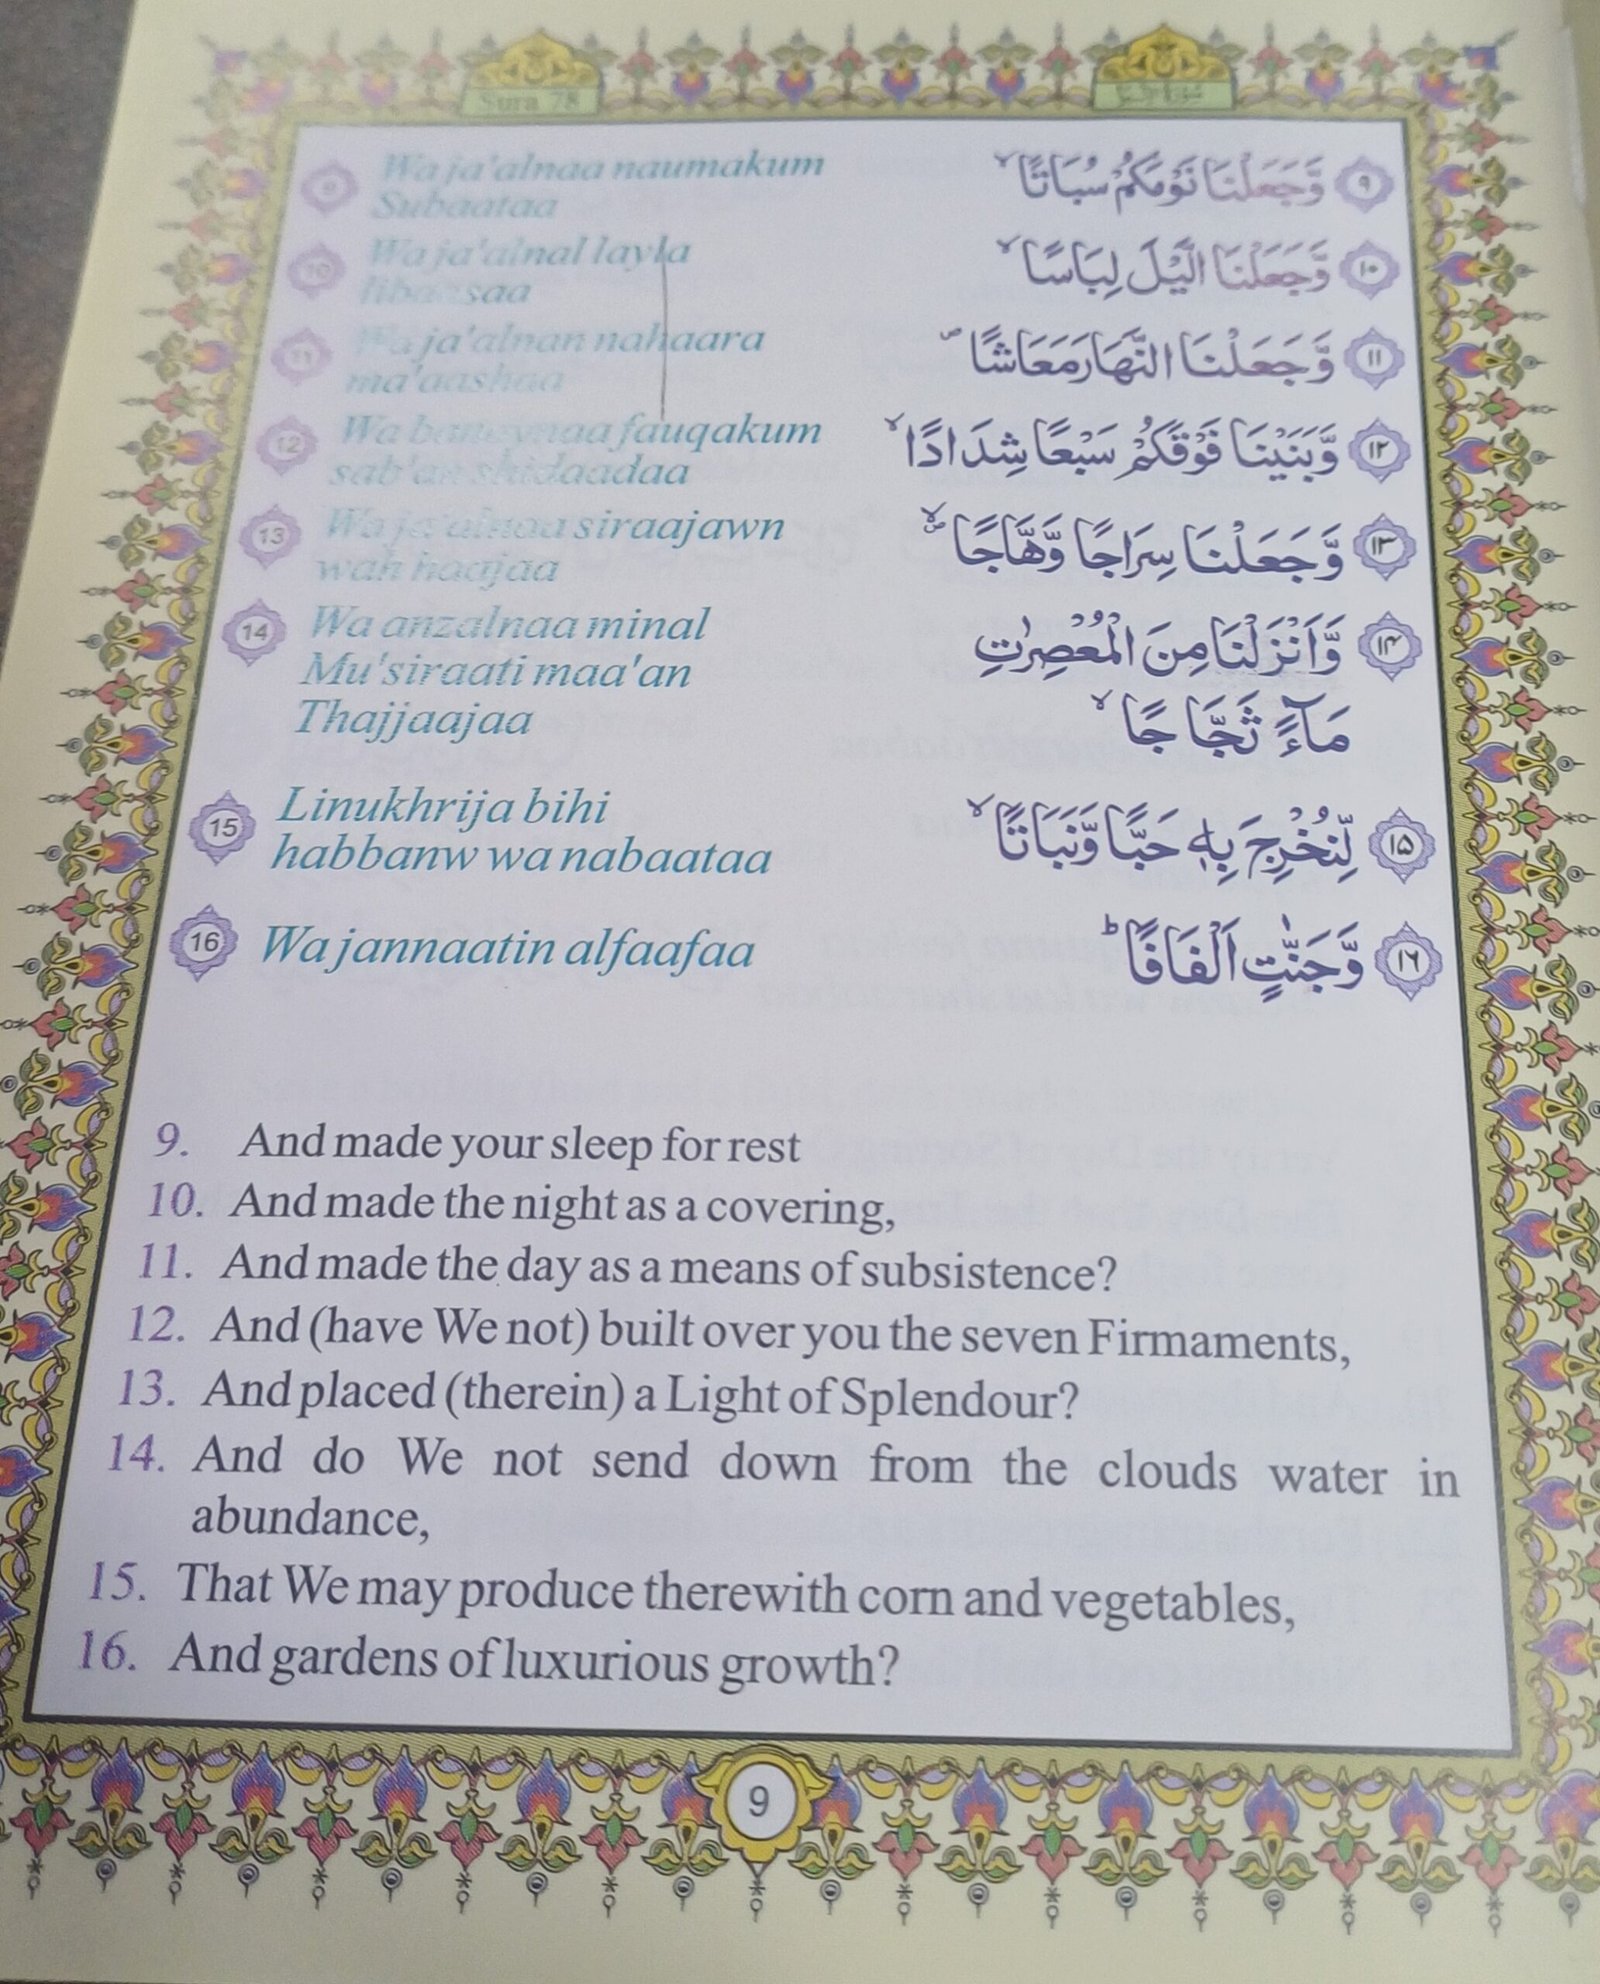 Sura 78
9 Wa ja'alnaa naumakum
Subaataa
وَّجَعَلْنَا نَوْمَكُمْ سُبَاتًا ۙ ٩
10 Wa ja'alnal layla
libaasaa
وَّجَعَلْنَا الَّيْلَ لِبَاسًا ۙ ١٠
11 Wa ja'alnan nahaara
ma'aashaa
وَّجَعَلْنَا النَّهَارَ مَعَاشًا ۪ ١١
12 Wa banaynaa fauqakum
sab'an shidaadaa
وَّبَنَيْنَا فَوْقَكُمْ سَبْعًا شِدَادًا ۙ ١٢
13 Wa ja'alnaa siraajawn
wah haajaa
وَّجَعَلْنَا سِرَاجًا وَّهَّاجًا ۪ۙ ١٣
14 Wa anzalnaa minal
Mu'siraati maa'an
Thajjaajaa
وَّاَنْزَلْنَا مِنَ الْمُعْصِرٰتِ ١٤
مَآءً ثَجَّاجًا ۙ
15 Linukhrija bihi
habbanw wa nabaataa
لِّنُخْرِجَ بِهٖ حَبًّا وَّنَبَاتًا ۙ ١٥
16 Wa jannaatin alfaafaa
وَّجَنّٰتٍ اَلْفَافًا ؕ ١٦
9. And made your sleep for rest
10. And made the night as a covering,
11. And made the day as a means of subsistence?
12. And (have We not) built over you the seven Firmaments,
13. And placed (therein) a Light of Splendour?
14. And do We not send down from the clouds water in
abundance,
15. That We may produce therewith corn and vegetables,
16. And gardens of luxurious growth?
9